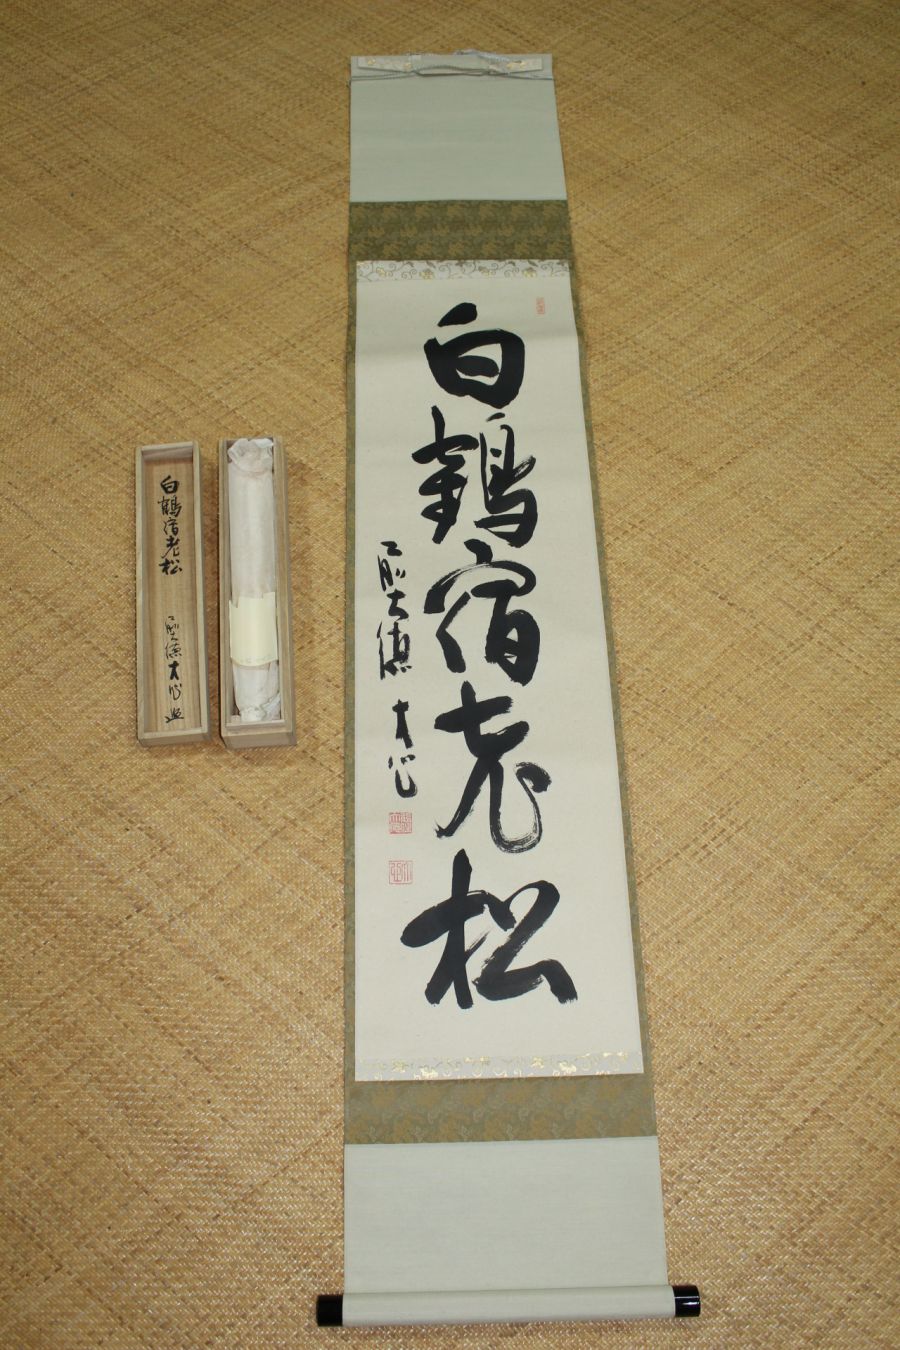 白鶴宿老松
前大徳 大心
白鶴宿老松
前大徳大心